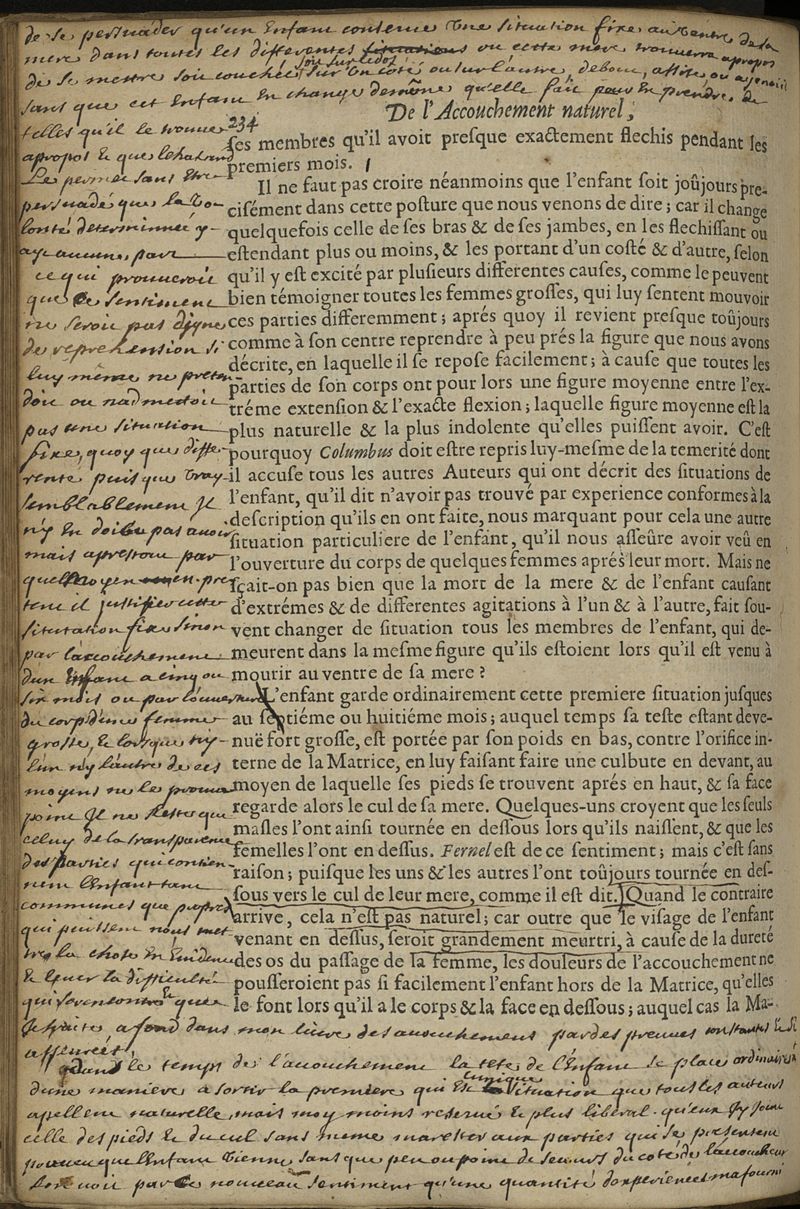 de se persuader qu'un Enfant conserve une situation fixe au ventre de sa
mere dans toutes les differentes situations ou cette mere trouvera apropos
de se mettre soit couchée sur un coté ou sur l'autre, debout, assise ou a genoil
soit sur le dos
sans que cet Enfant En change de meme qu'elle fait pour En prendre de
De l'Accouchement naturel,
234
ses membres qu'il avoit preſque exactement flechis pendant les
premiers mois.
Il ne faut pas croire néanmoins que l'enfant ſoit joûjours pre-
ciſément dans cette poſture que nous venons de dire ; car il change
quelquefois celle de ſes bras & de ſes jambes, en les flechiſſant ou
eſtendant plus ou moins, & les portant d'un coſté & d'autre, ſelon
qu'il y eſt excité par pluſieurs differentes cauſes, comme le peuvent
bien témoigner toutes les femmes groſſes, qui luy ſentent mouvoir
ces parties differemment ; aprés quoy il revient preſque toûjours
comme à ſon centre reprendre à peu prés la figure que nous avons
décrite, en laquelle il ſe repoſe facilement ; à cauſe que toutes les
parties de ſon corps ont pour lors une figure moyenne entre l'ex-
tréme extenſion & l'exacte flexion ; laquelle figure moyenne eſt la
plus naturelle & la plus indolente qu'elles puiſſent avoir. C'eſt
pourquoy Columbus doit eſtre repris luy-meſme de la temerité dont
il accuſe tous les autres Auteurs qui ont décrit des ſituations de
l'enfant, qu'il dit n'avoir pas trouvé par experience conformes à la
deſcription qu'ils en ont faite, nous marquant pour cela une autre
ſituation particuliere de l'enfant, qu'il nous aſſeûre avoir veû en
l'ouverture du corps de quelques femmes aprés leur mort. Mais ne
ſçait-on pas bien que la mort de la mere & de l'enfant cauſant
d'extrémes & de differentes agitations à l'un & à l'autre, fait ſou-
vent changer de ſituation tous les membres de l'enfant, qui de-
meurent dans la meſme figure qu'ils eſtoient lors qu'il eſt venu à
mourir au ventre de ſa mere ?
L'enfant garde ordinairement cette premiere ſituation juſques
au ſeptiéme ou huitiéme mois ; auquel temps ſa teſte eſtant deve-
nuë fort groſſe, eſt portée par ſon poids en bas, contre l'orifice in-
terne de la Matrice, en luy faiſant faire une culbute en devant, au
moyen de laquelle ſes pieds ſe trouvent aprés en haut, & ſa face
regarde alors le cul de ſa mere. Quelques-uns croyent que les ſeuls
maſles l'ont ainſi tournée en deſſous lors qu'ils naiſſent, & que les
femelles l'ont en deſſus. Fernel eſt de ce ſentiment ; mais c'eſt ſans
raiſon ; puiſque les uns & les autres l'ont toûjours tournée en deſ-
ſous vers le cul de leur mere, comme il eſt dit. Quand le contraire
arrive, cela n'eſt pas naturel ; car outre que le viſage de l'enfant
venant en deſſus, ſeroit grandement meurtri, à cauſe de la dureté
des os du paſſage de la femme, les douleurs de l'accouchement ne
pouſſeroient pas ſi facilement l'enfant hors de la Matrice, qu'elles
le font lors qu'il a le corps & la face en deſſous ; auquel cas la Ma-
telles qu'il le trouve
apropos & que le hazard
Le permet sans être
persuadé que la vo-
lonté determinée y
aye aucune part
ce qui prouveroit
que ce sentiment
ne seroit pas digne
de reprehension si
luy même ne preten-
doit ou nadmettoit
pas une situation
fixe, quoy que diffe-
rente puis que vray-
semblablement Il
n'y En doibt pas avoir
mais apres tout par
quel moyen pre-
tent il justifier cette
situtation fixe sinon
par laccouchement
d'un Enfant a cinq ou
six mois ou par l'ouverture
du corps d'une femme
grosse, & lors que ny
l'un ny lautre de ces
moyens ne le prouve
point Il ne reste que
celuy de la transparence
des parties qui contien-
nent l'Enfant tant
communes que propres
qui puissent nous met-
tre la chose En Evidence
& lever la difficulté
qui s'en contre que
Je traite a fond dans mon livre des accouchements par des preuves constantes & si
assurées,
dans le temps de l'accouchement la tete de l'Enfant se place ordinairem
d'une maniere a sortir la premiere qui est l'unique situation que tous les auteurs
apellent naturelle, mais moy moins reservé & plus liberal qu'eux J'y joins
celle des pieds & du cul sans meme marester aux parties qui se presentent
pourveu que l'Enfant vienne sans que peu ou point de secours du coté de l'accoucheur
par ce nouveau sentiment qu'une quantité d'experiences ma fourni